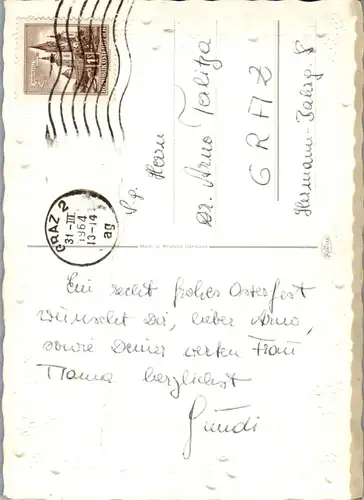 GRAZ 2
31-III
1964
13-14
ag
S. g. Herrn
Dr. Arno Terlitza
GRAZ
Hermann-Bahrg. 8
Made in Western Germany
Ein recht frohes Osterfest
wünscht Dir, lieber Arno,
sowie Deiner werten Frau
Mama herzlichst
Gundi